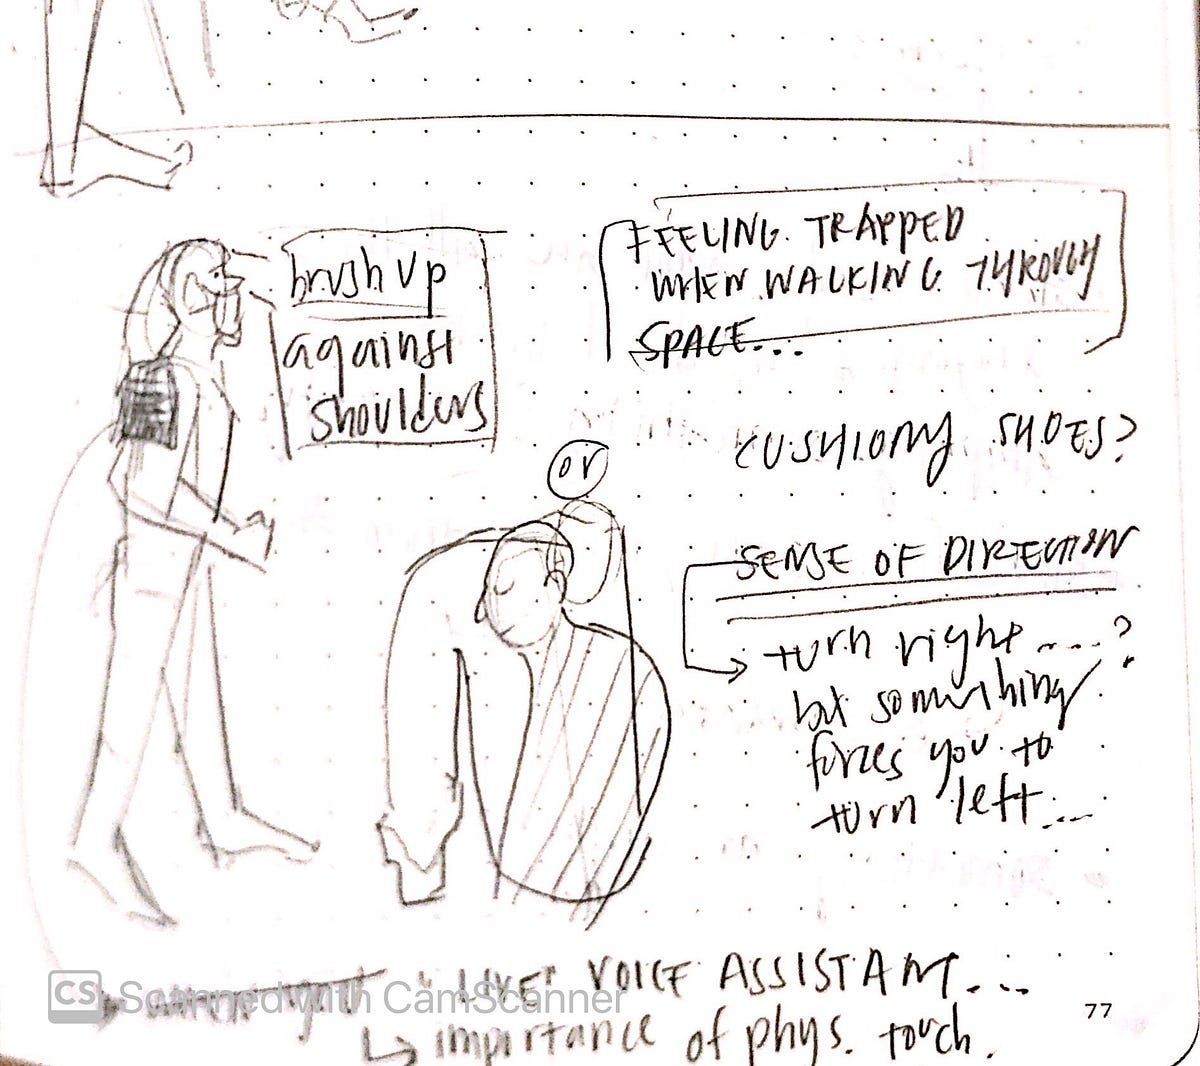 brush up
against
shoulders
FEELING TRAPPED
WHEN WALKING THROUGH
SPACE...
CUSHIONY SHOES?
or
SENSE OF DIRECTION
turn right ....?
but something
forces you to
turn left...
"LIKE" VOICE ASSISTANT...
CS Scanned with CamScanner
77
↳ importance of phys. touch.